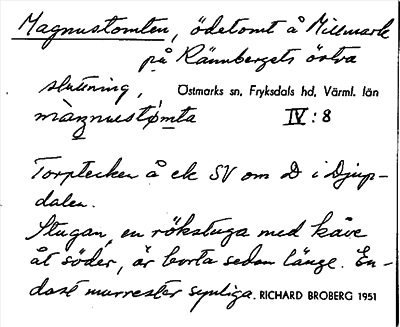 Magnustomten, ödetomt å Millmark
på Rännbergets östra
sluttning, Östmarks sn, Fryksdals hd, Värml. län
màgnustømta IV:8
Torptecken å ek SV om D i Djup-
dalen.
Stugan, en rökstuga med kåve
åt söder, är borta sedan länge. En-
dast murrester synliga. RICHARD BROBERG 1951